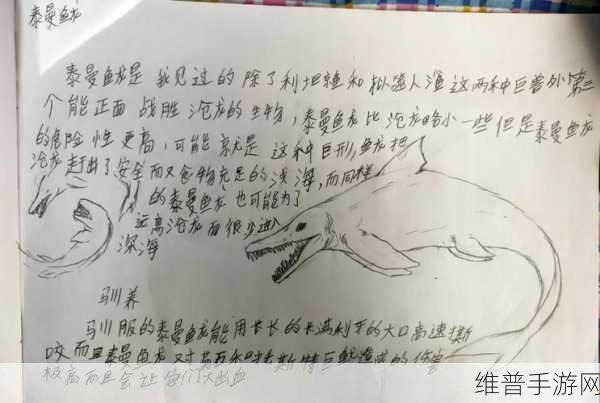 泰曼鱼龙
泰曼鱼龙是我见过的除了利坦鲸和拟噬人鲨这两种巨兽外第三
个能正面战胜沧龙的生物，泰曼鱼龙比沧龙略小一些但是泰曼鱼龙
的危险性更高，可能就是这种巨形鱼龙把
沧龙赶出了安全而又食物充足的浅海，而同样
的泰曼鱼龙也可能为了
远离沧龙而很少进入
深海
驯养
驯服的泰曼鱼龙能用长长的长满利牙的大口高速撕
咬而且泰曼鱼龙对其西和斯特巨兽造成的伤害
极高而且会让它们大出血
维普手游网